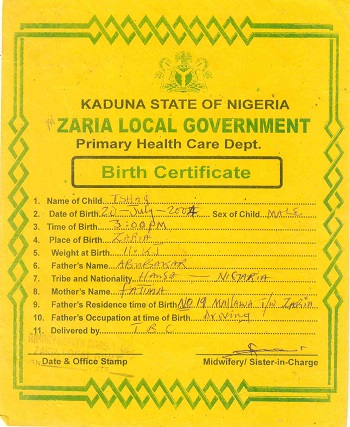 KADUNA STATE OF NIGERIA
ZARIA LOCAL GOVERNMENT
Primary Health Care Dept.
Birth Certificate
1. Name of Child ISHAQ
2. Date of Birth 20-July-2004 Sex of Child MALE
3. Time of Birth 3:00PM
4. Place of Birth ZARIA
5. Weight at Birth
6. Father's Name ABUBAKAR
7. Tribe and Nationality HAUSA — NIGARIA
8. Mother's Name FATIMA
9. Father's Residence time of Birth NO 19 MALLAWA T/W ZARIA
10. Father's Occupation at time of Birth Driving
11. Delivered by
Date & Office Stamp Midwifery/ Sister-in-Charge